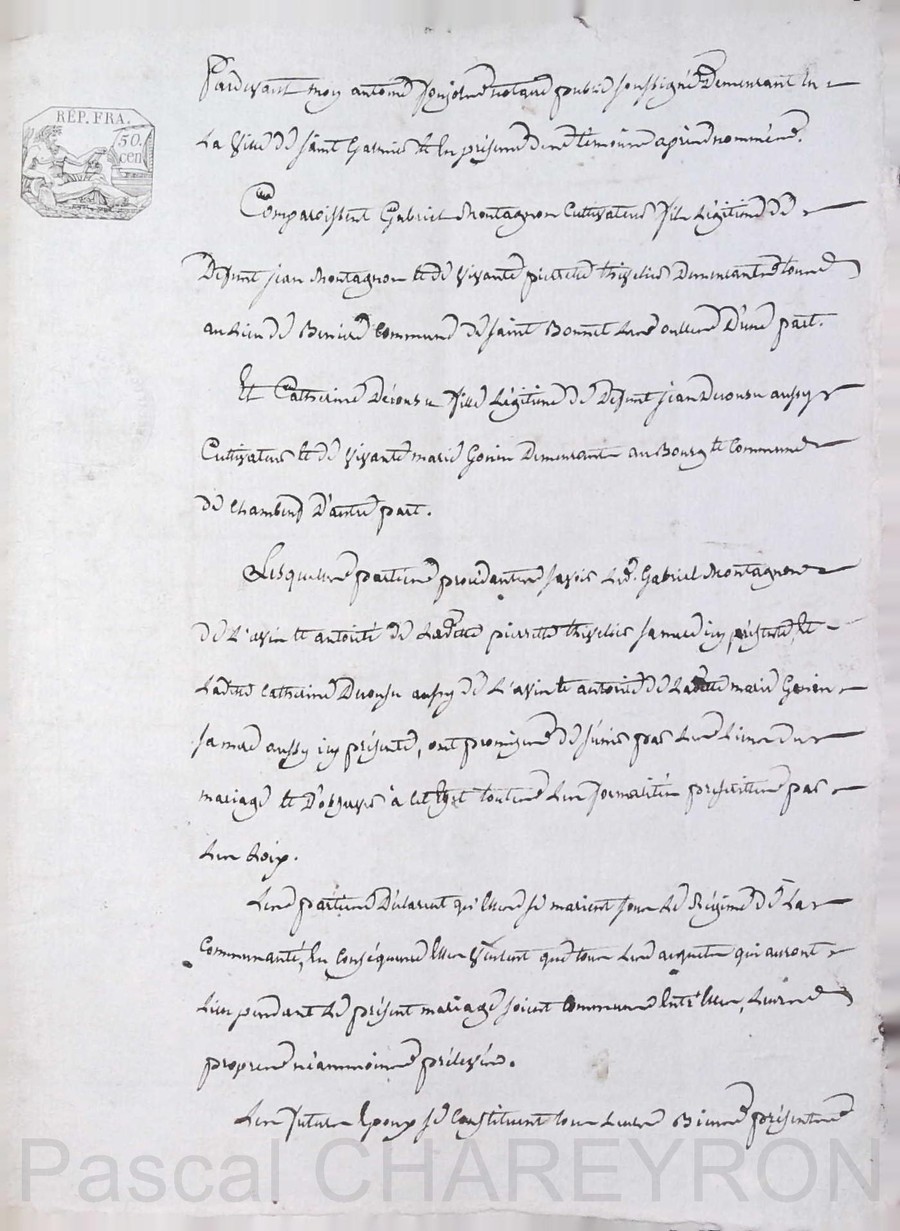 RÉP. FRA.
50.
cen
Pardevant moy antoine notaire public soussigné Demeurant En
La Ville de saint Galmier et En présence des témoins après nommés.
Comparoissent Gabriel Montagnon Cultivateur fils Légitime de
Defunt jean Montagnon et de Vivante pierrette Demeurants tous
au Lieu de Commune de saint Bonnet Les oulles D'une part.
Et Catherine Fille Légitime de Defunt jean aussy
Cultivateur et de Vivante marie Demeurante au Bourg et Commune
de Chambeuf D'autre part.
Lesquelles parties procédantes savoir Led. Gabriel Montagnon
de L'avis et autorité de Ladite pierrette sa mere icy présente, et
Ladite Catherine aussy de L'avis et autorité de Ladite marie
sa mere aussy icy présente, ont promis de s'unir par Les Liens du
mariage et D'observer à cet Egard toutes Les formalités prescrittes par
Les Loix.
Les parties Déclarent qu'Elles se marient sous Le Régime de La
Communauté, En Conséquence Elles Veulent que tous Les acquets qui auront
Lieu pendant Le présent mariage soient Communs Entr'Elles, Leurs
propres néammoins prélevés.
Les futurs Epoux se Constituent tous Leurs Biens présents
Pascal CHAREYRON